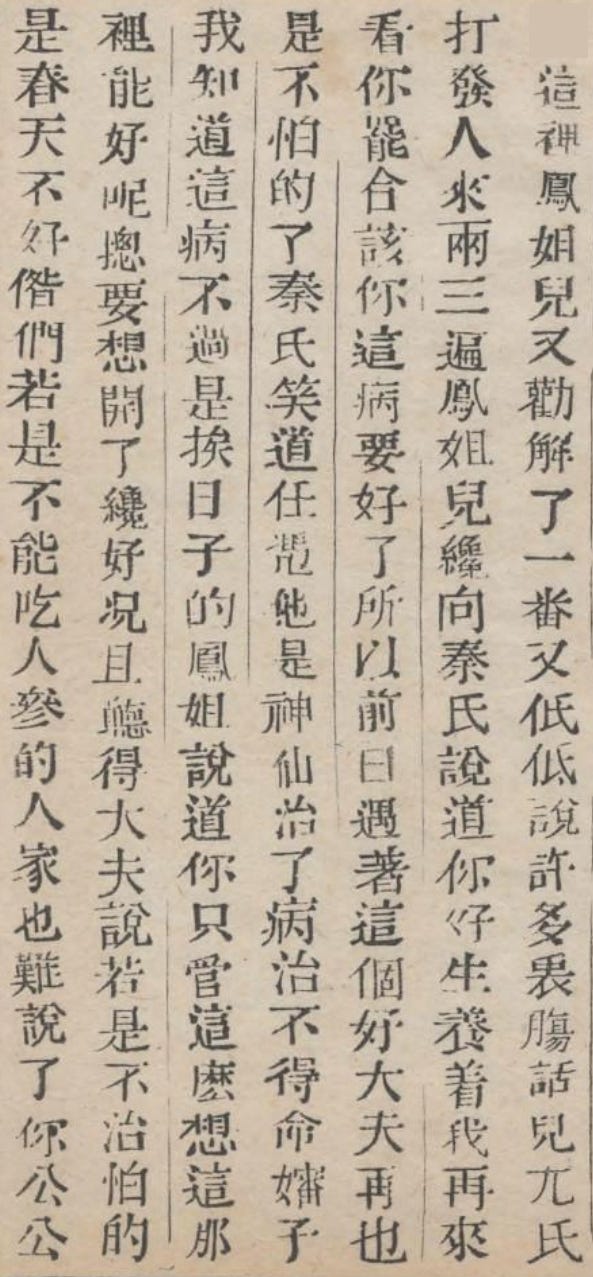 這裡鳳姐兒又勸解了一番又低低說許多衷腸話兒尤氏
打發人來兩三遍鳳姐兒纔向秦氏說道你好生養着我再來
看你罷合該你這病要好了所以前日遇著這個好大夫再也
是不怕的了秦氏笑道任凭他是神仙治了病治不得命嬸子
我知道這病不過是挨日子的鳳姐說道你只管這麽想這那
裡能好呢摠要想開了纔好况且聽得大夫說若是不治怕的
是春天不好偺們若是不能吃人參的人家也難說了你公公